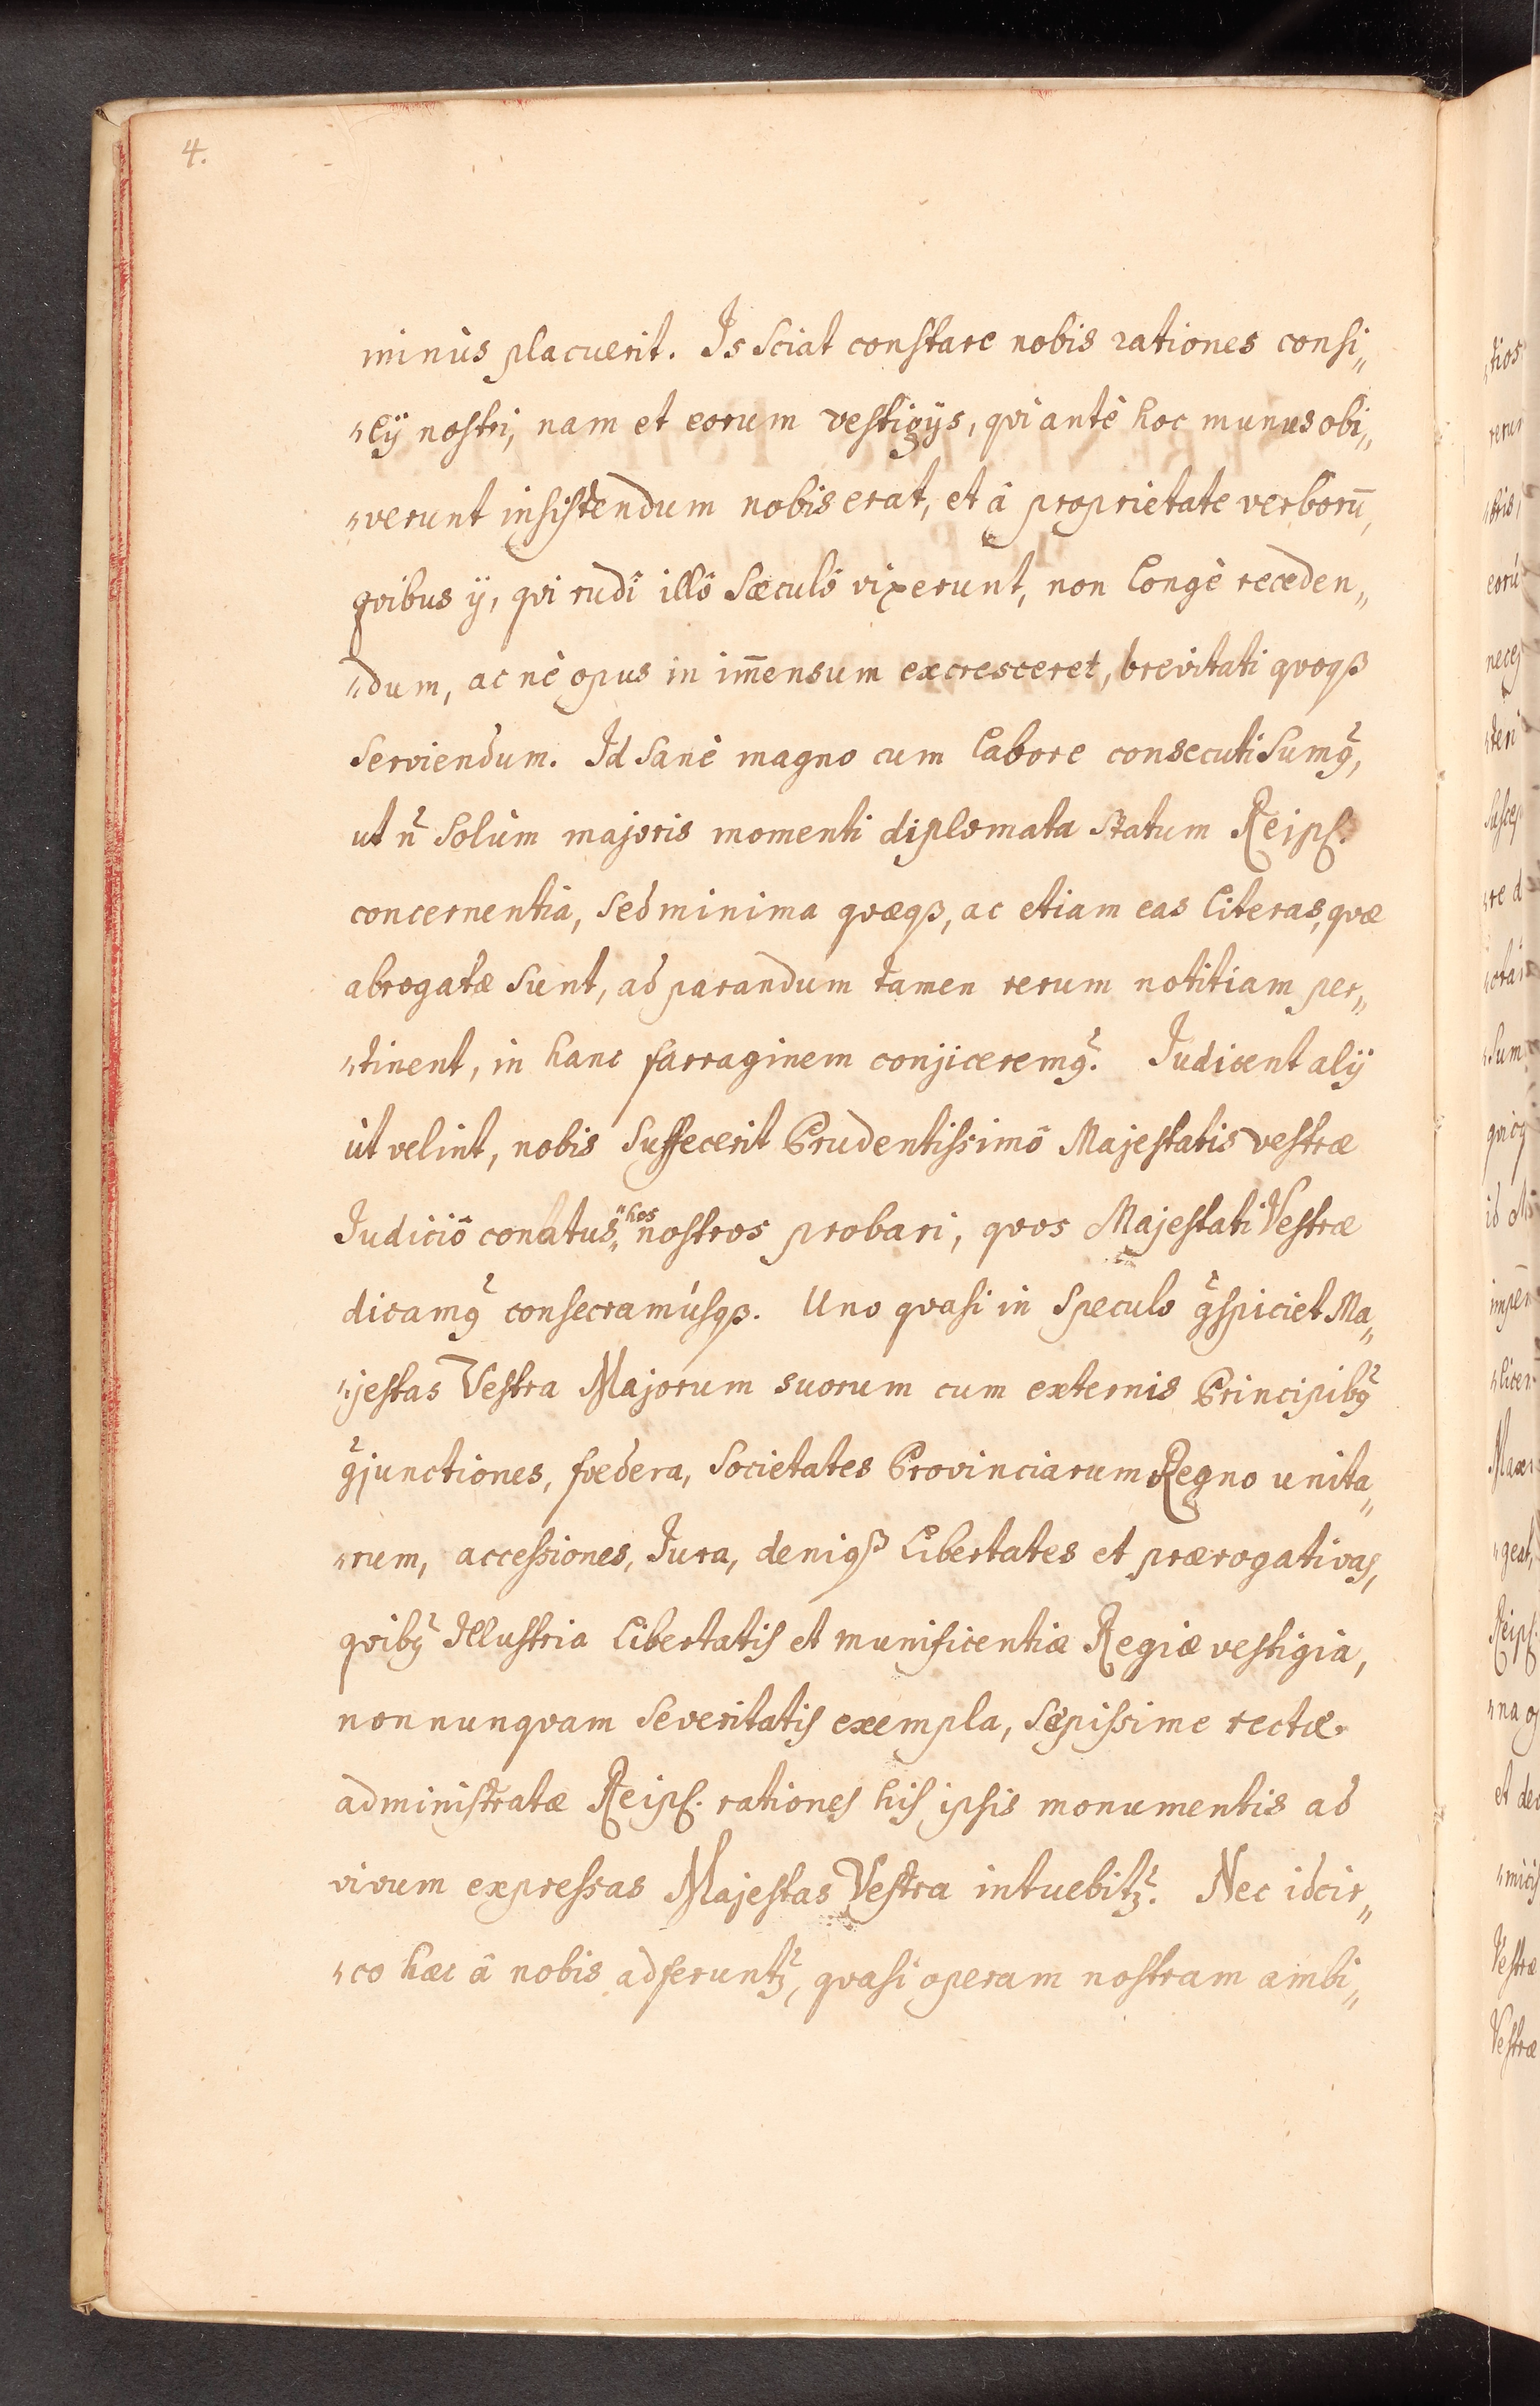 4.
minùs placuerit. Is Sciat constare nobis rationes consi„
„lÿ nostri, nam et eorum vestigÿs, qvi antè hoc munus obi„
„verunt insistendum nobis erat, et â proprietate verborū,
qvibus ÿ, qvi rudî illô Sæculô vixerunt, non longè receden„
„dum, ac nè opus in im̄ensum excresceret, brevitati qvoqꝫ
Serviendum. Id Sanè magno cum labore consecuti Sumꝰ,
ut n̄ Solùm majoris momenti diplomata Statum Reipſ.
concernentia, Sed minima qvæqꝫ, ac etiam eas literas, qvæ
abrogatæ Sunt, ad parandum tamen rerum notitiam per„
„tinent, in hanc farraginem conjiceremꝰ. Iudicent alÿ
ùt velint, nobis Suffecerit Prudentissimô Majestatis vestræ
Iudiciô conatus „hos nostros probari, qvos Majestati Vestræ
dicamꝰ consecramúsqꝫ. Uno qvasi in Speculo ꝯspiciet Ma„
„jestas Vestra Majorum suorum cum externis Principibꝰ
ꝯjunctiones, fœdera, Societates Provinciarum Regno unita„
„rum, accessiones, Iura, deniqꝫ Libertates et prærogativas,
qvibꝰ Illustria Libertatis et munificentiæ Regiæ vestigia,
nonnunqvam Severitatis exempla, Sæpissime rectæ
administratæ Reipſ. rationes his ipsis monumentis ad
vivum expressas Majestas Vestra intuebitꝛ. Nec idcir„
„co hæc â nobis adferuntꝛ, qvasi operam nostram ambi„